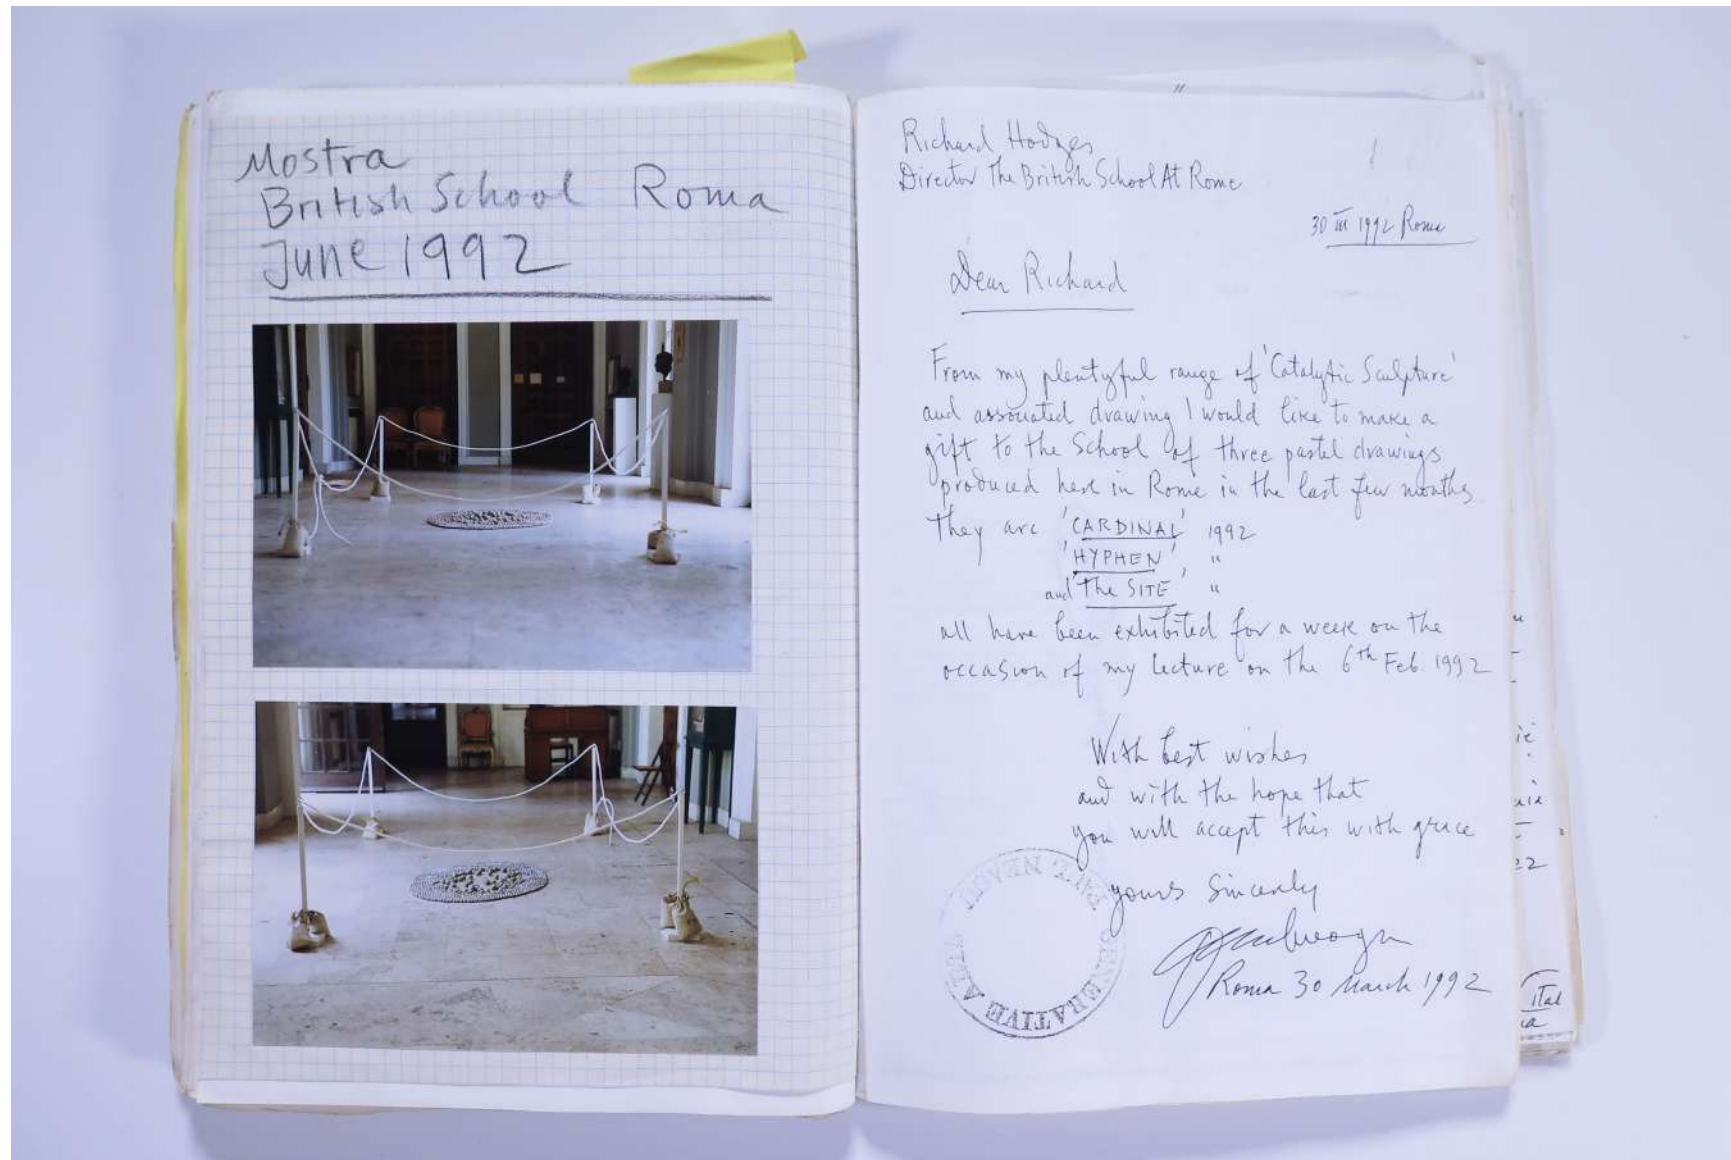 Mostra
British School Roma
June 1992
Richard Hodges
Director The British School At Rome
30 III 1992 Roma
Dear Richard
From my plentyful range of 'Catalytic Sculpture'
and associated drawing I would like to make a
gift to the School of three pastel drawings
produced here in Rome in the last few months
They are 'CARDINAL' 1992
'HYPHEN' "
and 'The SITE' "
all have been exhibited for a week on the
occasion of my lecture on the 6th Feb. 1992
With best wishes
and with the hope that
you will accept this with grace
yours Sincerely
Roma 30 March 1992
GENERATIVE
ital